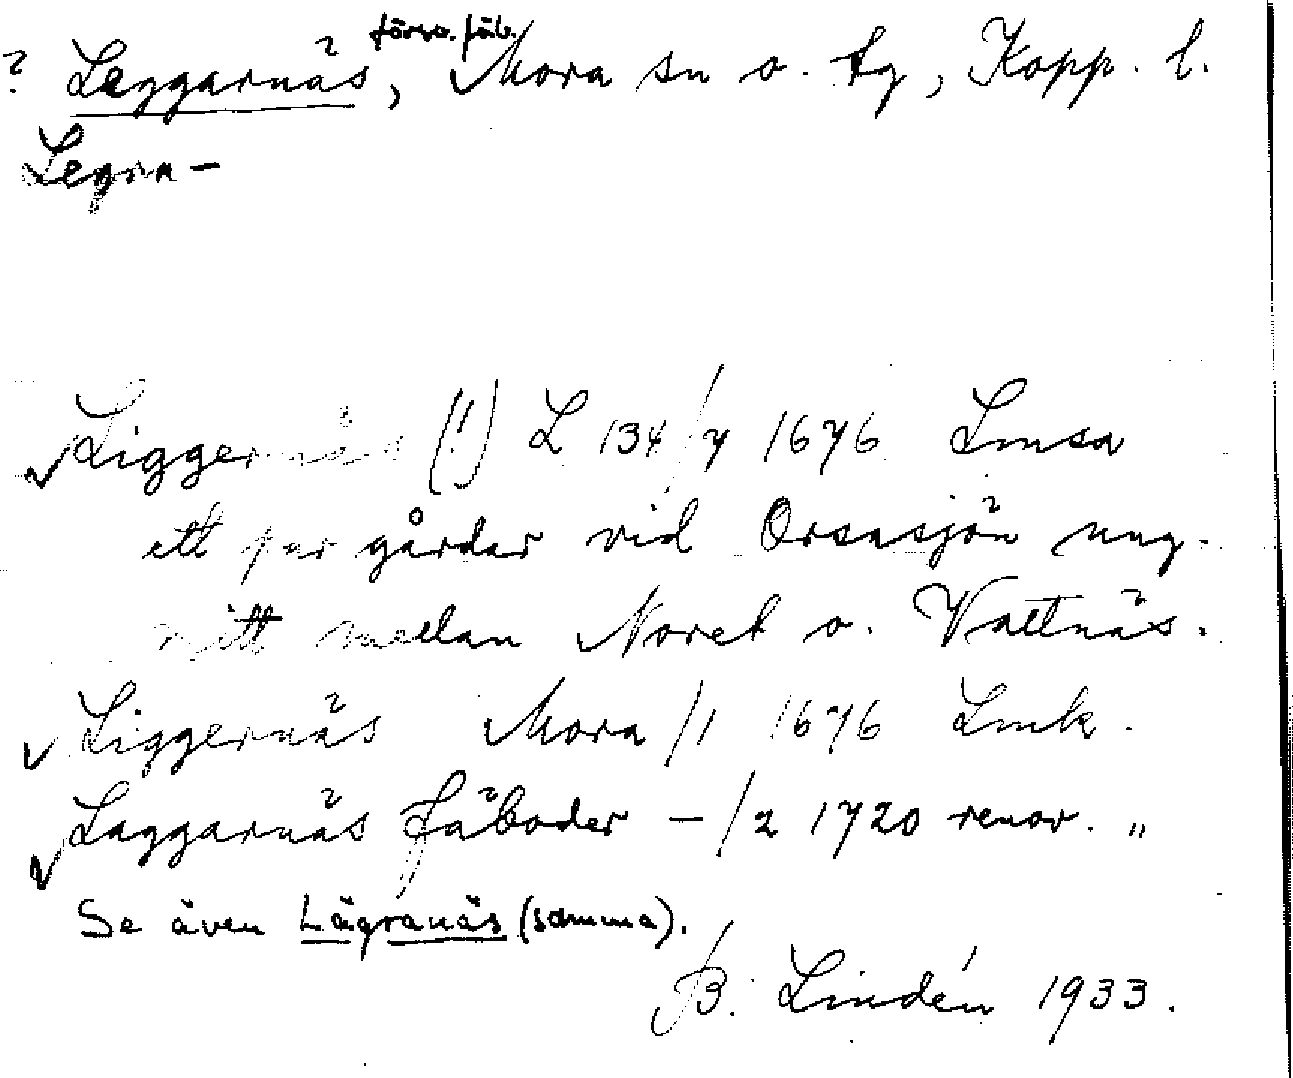 försv. fäb.
? Leggarnäs, Mora sn o. tg, Kopp. l.
Legra-
Liggernäs (!) L 134/7 1676 Lmsa
ett par gårdar vid Orsasjön ung.
mitt mellan Noret o. Vattnäs.
Liggernäs Mora/1 1676 Lmk.
Laggarnäs fäboder -/2 1720 renov. "
Se även Lägranäs (samma).
B. Lindén 1933.